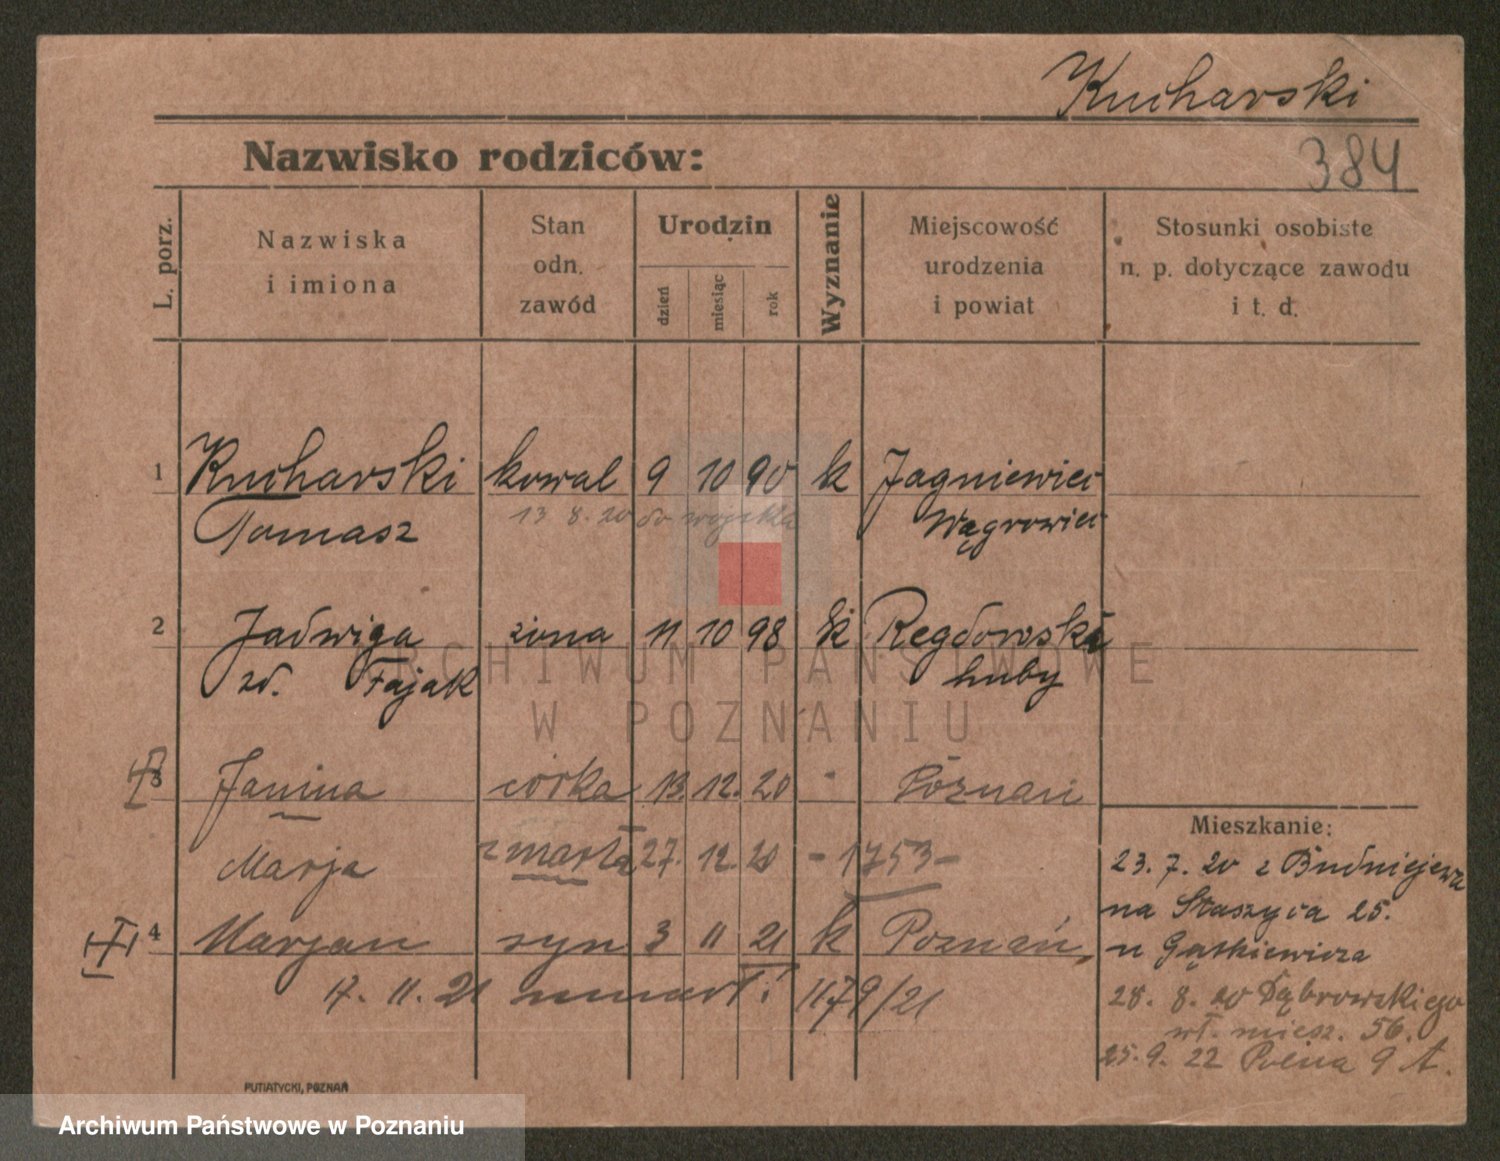 Kucharski
Nazwisko rodziców:
384
L. porz.
Nazwiska
i imiona
Stan
odn.
zawód
Urodzin
dzień
miesiąc
rok
Wyznanie
Miejscowość
urodzenia
i powiat
Stosunki osobiste
n. p. dotyczące zawodu
i t. d.
1 Kucharski kowal 9 10 90 k Jagniewiec
13 8. 20 do wojska
Tomasz Wągrowiec
2 Jadwiga żona 11 10 98 k Regdowskie
zd. Fajak huby
3 Janina córka 13. 12. 20 Poznań
Marja zmarła 27. 12. 20 - 1753 -
4 Marjan syn 3 11 21 k Poznań
17. 11. 21 zmarł! 1179/21
Mieszkanie:
23. 7. 20 z Budniejewa
na Staszyca 25.
u Gątkiewicza
28. 8. 20 Dąbrowskiego
wł. miesz. 56.
25. 9. 22 Polna 9 t.
PUTIATYCKI, POZNAŃ
ARCHIWUM PAŃSTWOWE
W POZNANIU
Archiwum Państwowe w Poznaniu